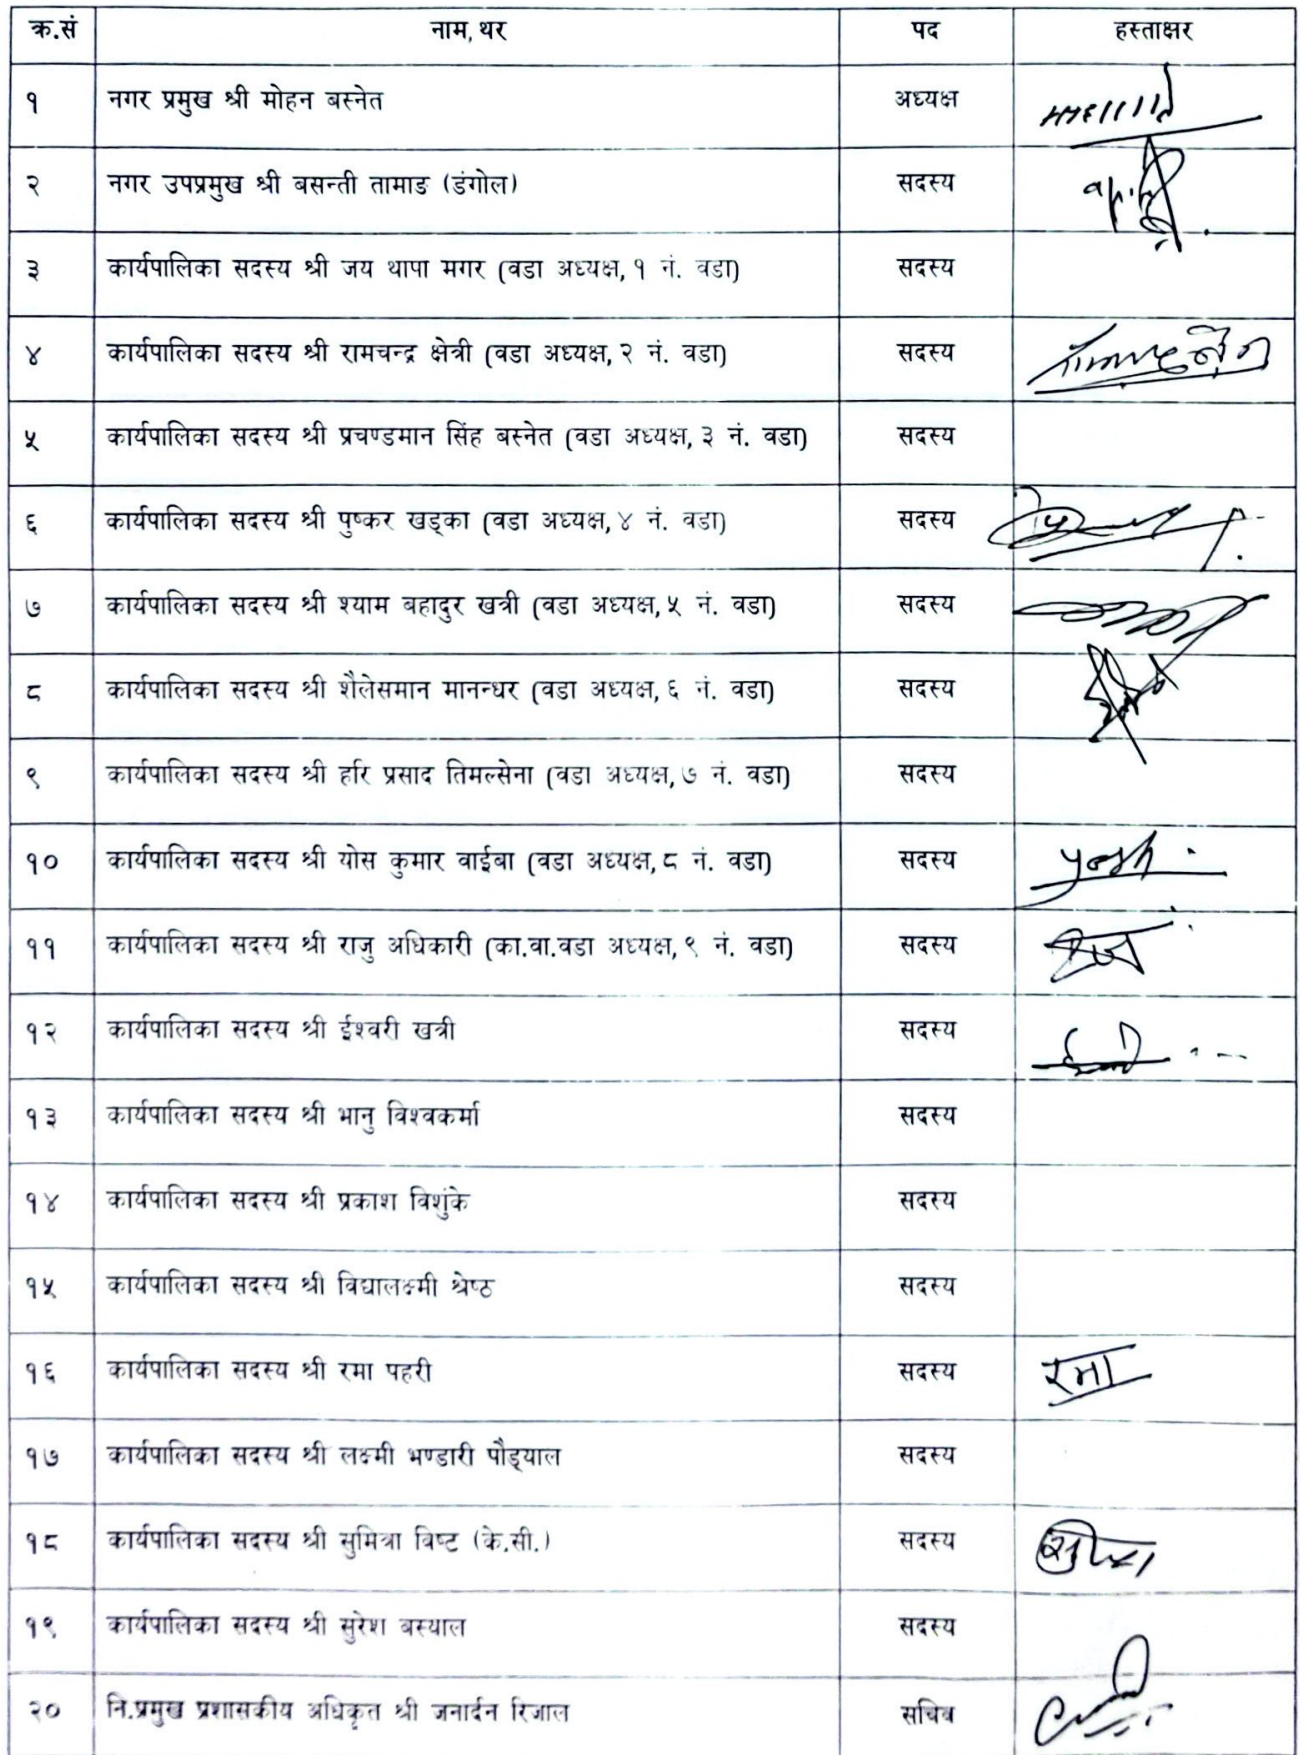 क्र.सं नाम, थर पद हस्ताक्षर
१ नगर प्रमुख श्री मोहन बस्नेत अध्यक्ष
२ नगर उपप्रमुख श्री बसन्ती तामाङ (डंगोल) सदस्य
३ कार्यपालिका सदस्य श्री जय थापा मगर (वडा अध्यक्ष, १ नं. वडा) सदस्य
४ कार्यपालिका सदस्य श्री रामचन्द्र क्षेत्री (वडा अध्यक्ष, २ नं. वडा) सदस्य
५ कार्यपालिका सदस्य श्री प्रचण्डमान सिंह बस्नेत (वडा अध्यक्ष, ३ नं. वडा) सदस्य
६ कार्यपालिका सदस्य श्री पुष्कर खड्का (वडा अध्यक्ष, ४ नं. वडा) सदस्य
७ कार्यपालिका सदस्य श्री श्याम बहादुर खत्री (वडा अध्यक्ष, ५ नं. वडा) सदस्य
८ कार्यपालिका सदस्य श्री शैलेसमान मानन्धर (वडा अध्यक्ष, ६ नं. वडा) सदस्य
९ कार्यपालिका सदस्य श्री हरि प्रसाद तिमल्सेना (वडा अध्यक्ष, ७ नं. वडा) सदस्य
१० कार्यपालिका सदस्य श्री योस कुमार वाईबा (वडा अध्यक्ष, ८ नं. वडा) सदस्य
११ कार्यपालिका सदस्य श्री राजु अधिकारी (का.वा.वडा अध्यक्ष, ९ नं. वडा) सदस्य
१२ कार्यपालिका सदस्य श्री ईश्वरी खत्री सदस्य
१३ कार्यपालिका सदस्य श्री भानु विश्वकर्मा सदस्य
१४ कार्यपालिका सदस्य श्री प्रकाश विशुंके सदस्य
१५ कार्यपालिका सदस्य श्री विद्यालक्ष्मी श्रेष्ठ सदस्य
१६ कार्यपालिका सदस्य श्री रमा पहरी सदस्य रमा
१७ कार्यपालिका सदस्य श्री लक्ष्मी भण्डारी पौड्याल सदस्य
१८ कार्यपालिका सदस्य श्री सुमित्रा विष्ट (के.सी.) सदस्य
१९ कार्यपालिका सदस्य श्री सुरेश बस्याल सदस्य
२० नि.प्रमुख प्रशासकीय अधिकृत श्री जनार्दन रिजाल सचिव